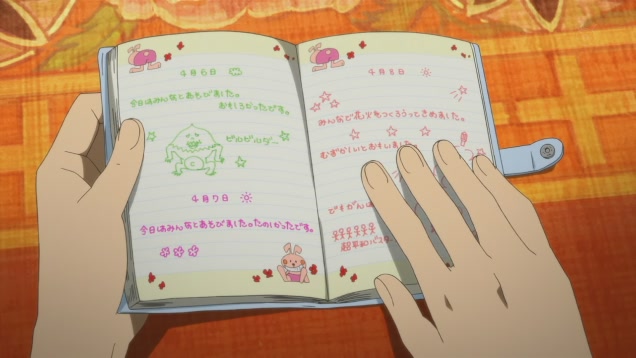 4月6日
今日はみんなとあそびました。
おもしろかったです。
ビルゲルゲー
4月7日
今日はみんなとあそびましたのたのしかったです。
4月8日
みんなで花火をつくろうってきめました。
むずかしいとおもいました
どもがんば
超平和バスター